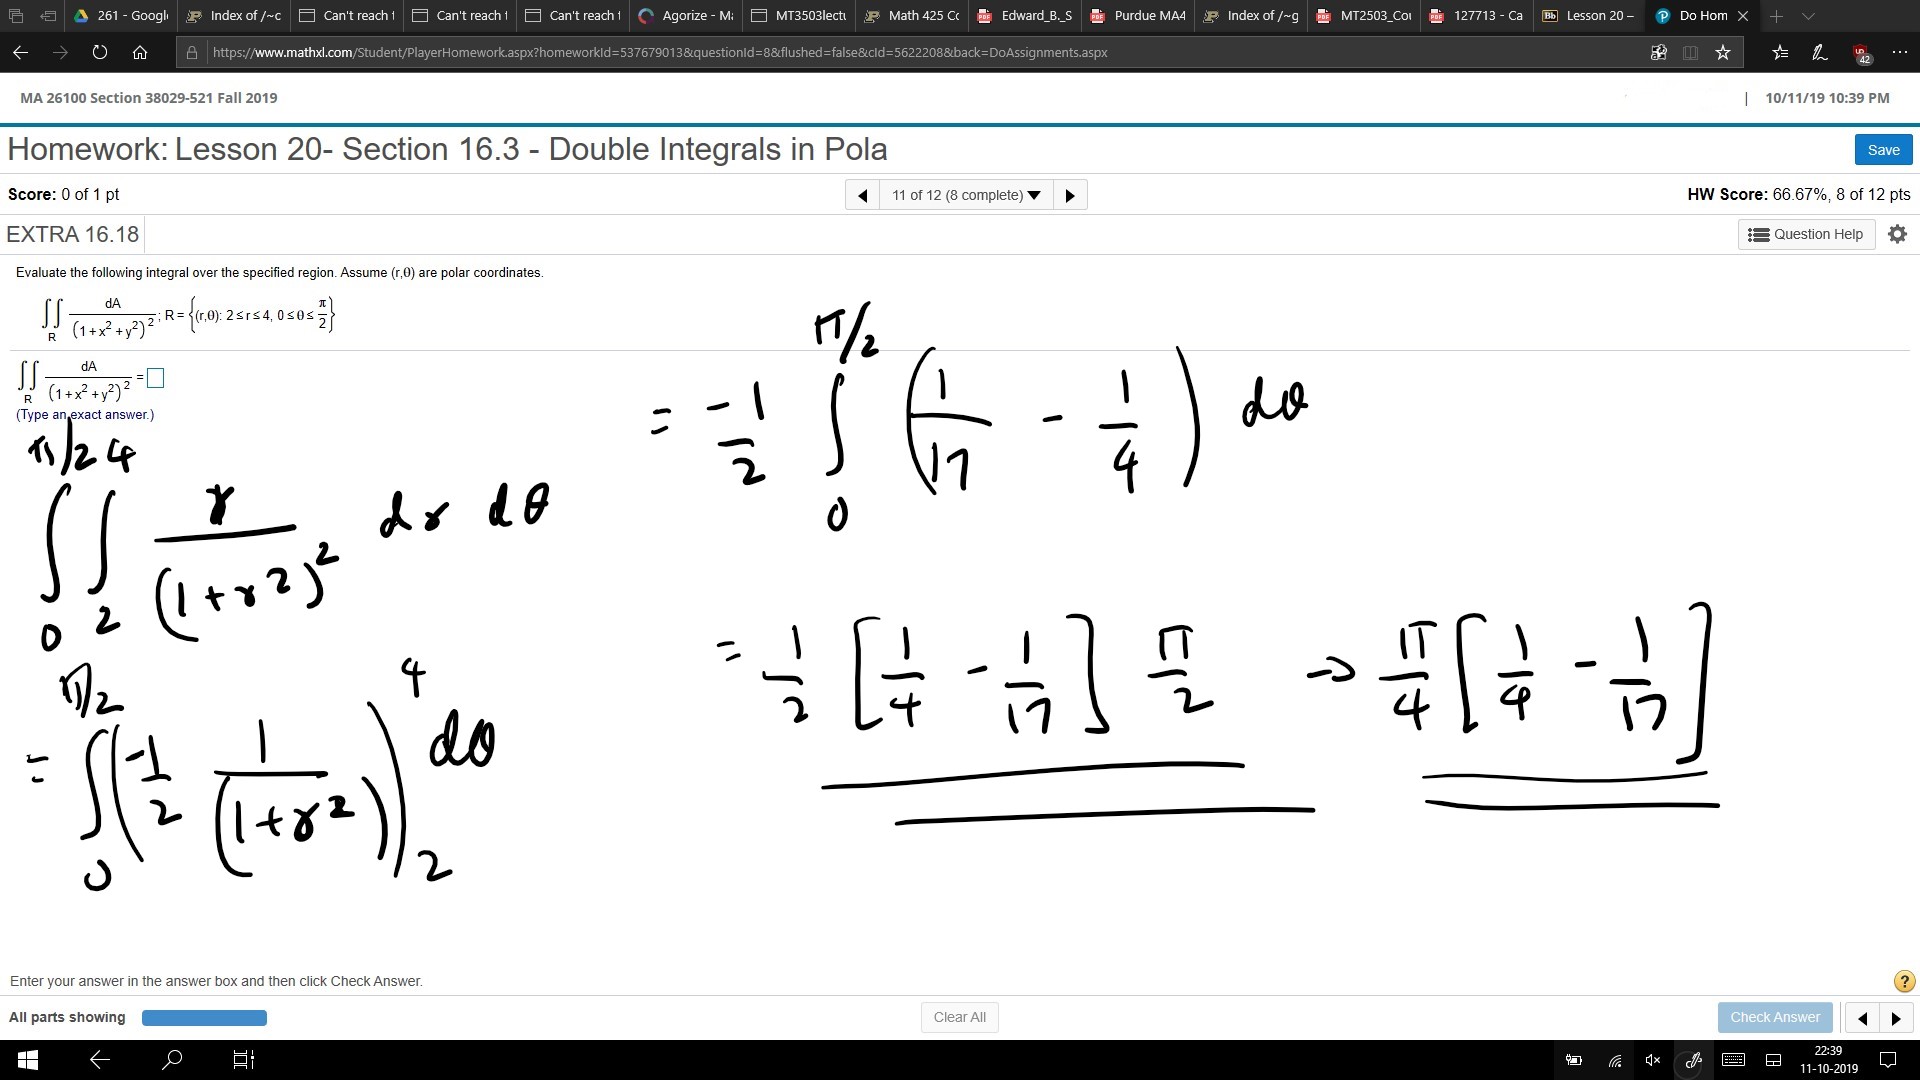 261 - Googl
Index of /~c
Can't reach t
Can't reach t
Can't reach t
Agorize - Ma
MT3503lectu
Math 425 Co
Edward_B._S
Purdue MA4
Index of /~g
MT2503_Cou
127713 - Ca
Lesson 20 –
Do Hom
https://www.mathxl.com/Student/PlayerHomework.aspx?homeworkId=537679013&questionId=8&flushed=false&cId=5622208&back=DoAssignments.aspx
42
MA 26100 Section 38029-521 Fall 2019
| 10/11/19 10:39 PM
Homework: Lesson 20- Section 16.3 - Double Integrals in Pola
Save
Score: 0 of 1 pt
11 of 12 (8 complete)
HW Score: 66.67%, 8 of 12 pts
EXTRA 16.18
Question Help
Evaluate the following integral over the specified region. Assume (r,θ) are polar coordinates.
∫∫_R dA/(1+x²+y²)²; R = {(r,θ): 2≤r≤4, 0≤θ≤π/2}
∫∫_R dA/(1+x²+y²)² =
(Type an exact answer.)
∫_0^{π/2} ∫_2^4 r/(1+r²)² dr dθ
= ∫_0^{π/2} (-1/2 1/(1+r²))_2^4 dθ
= -1/2 ∫_0^{π/2} (1/17 - 1/4) dθ
= 1/2 [1/4 - 1/17] π/2 → π/4 [1/4 - 1/17]
Enter your answer in the answer box and then click Check Answer.
?
All parts showing
Clear All
Check Answer
22:39
11-10-2019